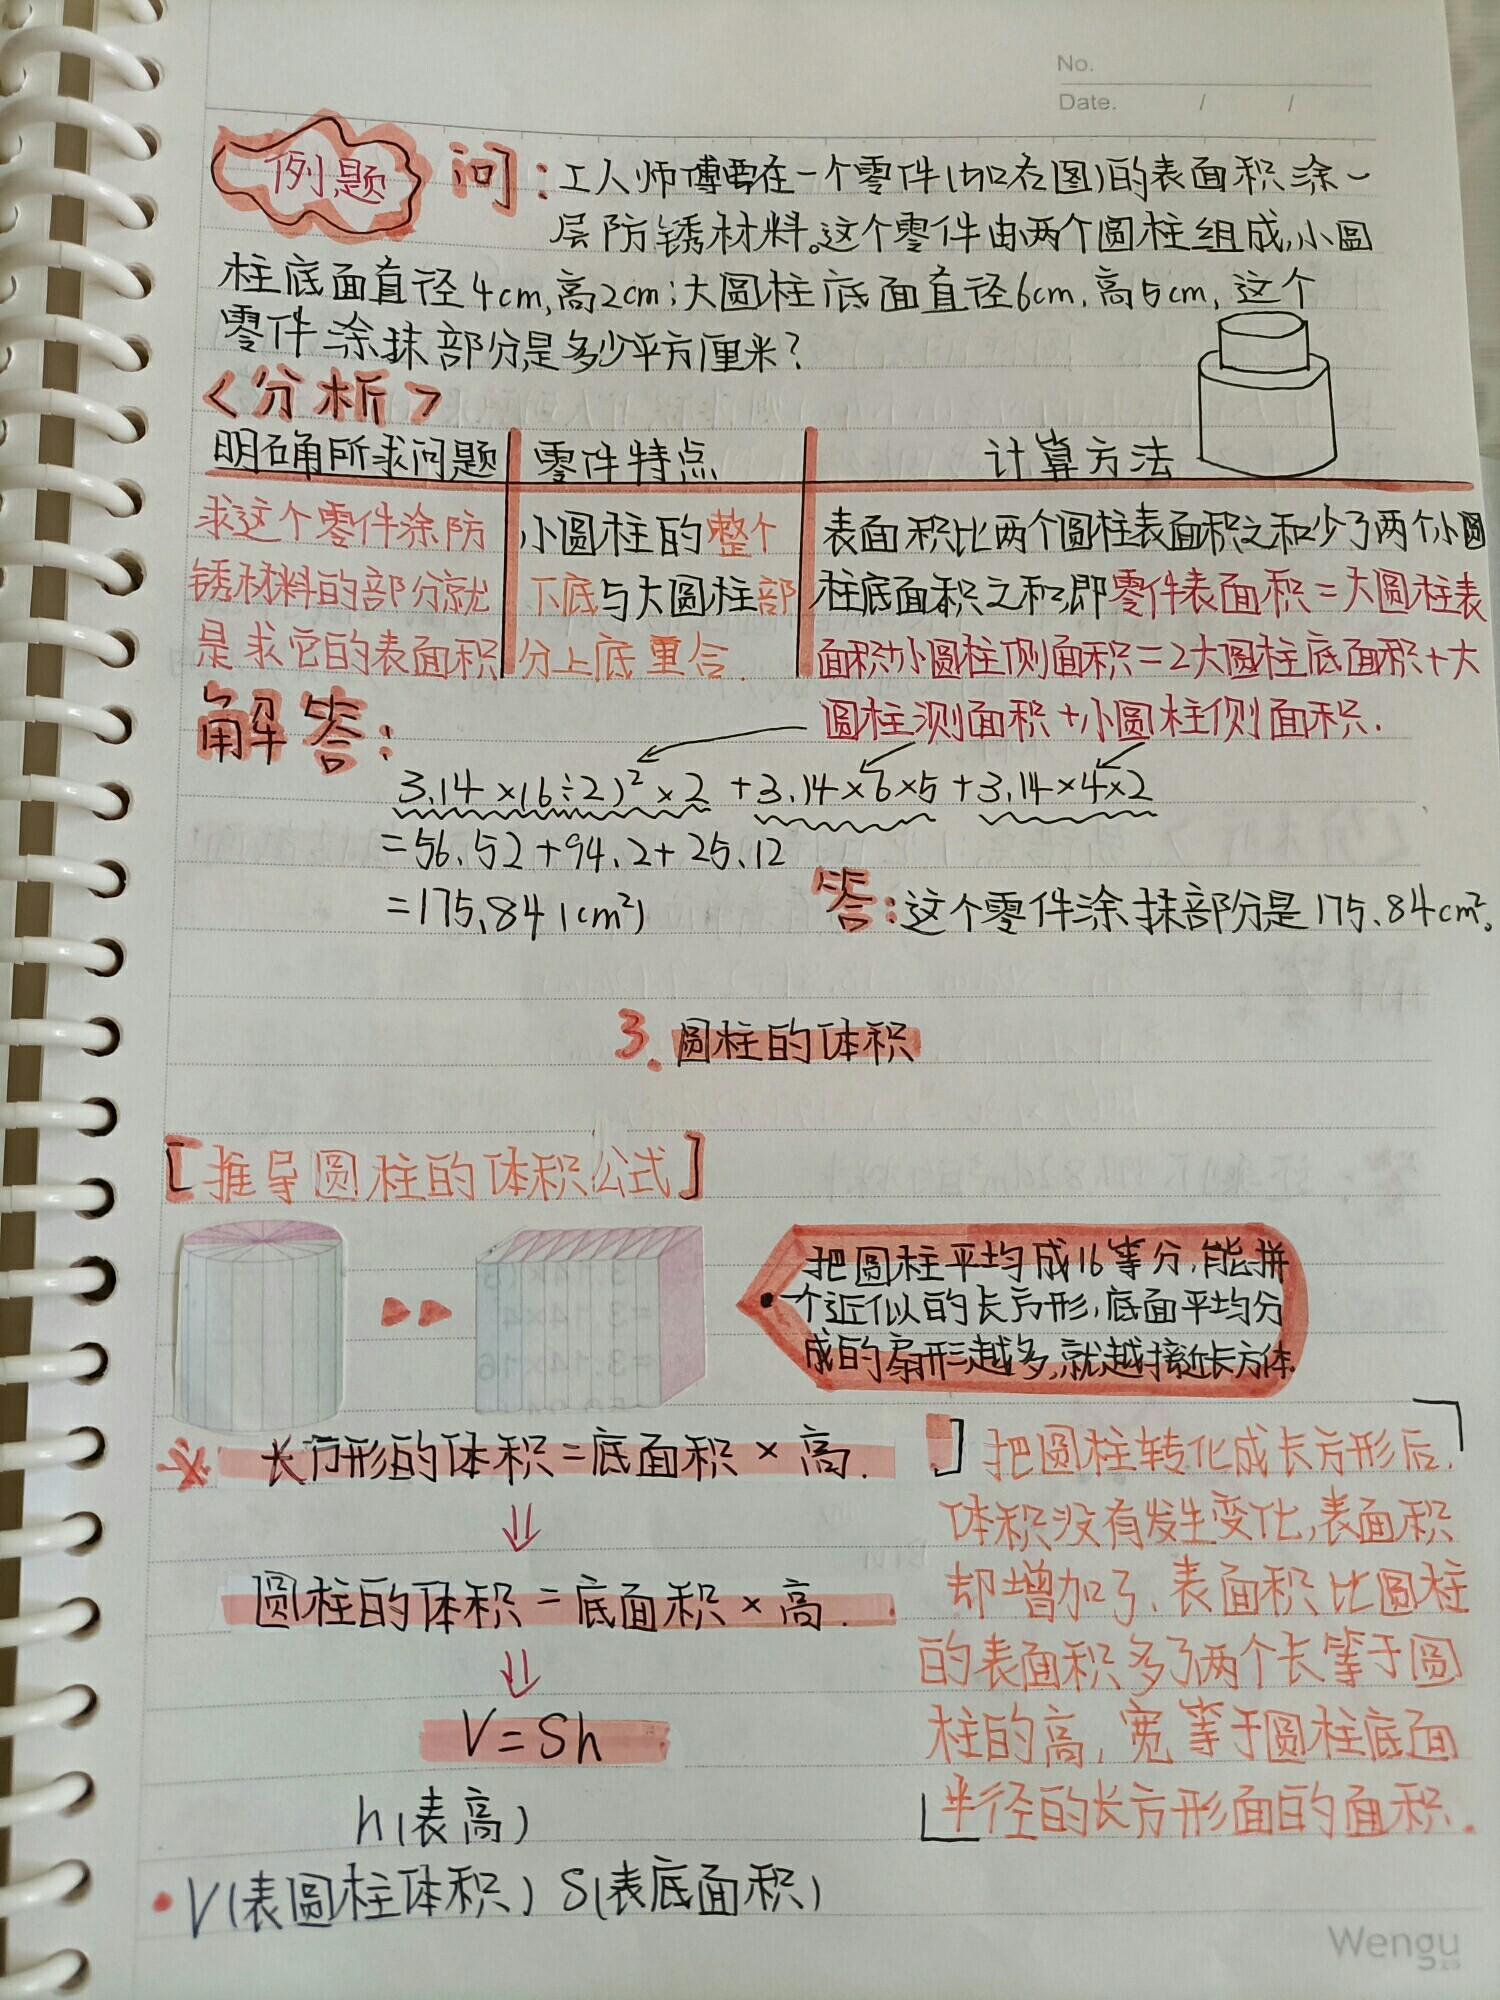 No.
Date.    /    /
例题 问:工人师傅要在一个零件(如右图)的表面积涂一
层防锈材料。这个零件由两个圆柱组成,小圆
柱底面直径4cm,高2cm;大圆柱底面直径6cm,高5cm,这个
零件涂抹部分是多少平方厘米?
<分析>
明确所求问题 零件特点 计算方法
求这个零件涂防
锈材料的部分就
是求它的表面积
小圆柱的整个
下底与大圆柱部
分上底重合.
表面积比两个圆柱表面积之和少了两个小圆
柱底面积之和,即零件表面积=大圆柱表
面积+小圆柱侧面积=2大圆柱底面积+大
圆柱测面积+小圆柱侧面积.
解答:
3.14×(6÷2)²×2+3.14×6×5+3.14×4×2
=56.52+94.2+25.12
=175.84(cm²)
答:这个零件涂抹部分是175.84cm²。
3.圆柱的体积
[推导圆柱的体积公式]
把圆柱平均成16等分,能拼
个近似的长方形,底面平均分
成的扇形越多,就越接近长方体.
※ 长方形的体积=底面积×高.
⇓
圆柱的体积=底面积×高.
⇓
V=Sh
h(表高)
V(表圆柱体积) S(表底面积)
把圆柱转化成长方形后,
体积没有发生变化,表面积
却增加了,表面积比圆柱
的表面积多了两个长等于圆
柱的高,宽等于圆柱底面
半径的长方形面的面积.
Wengu